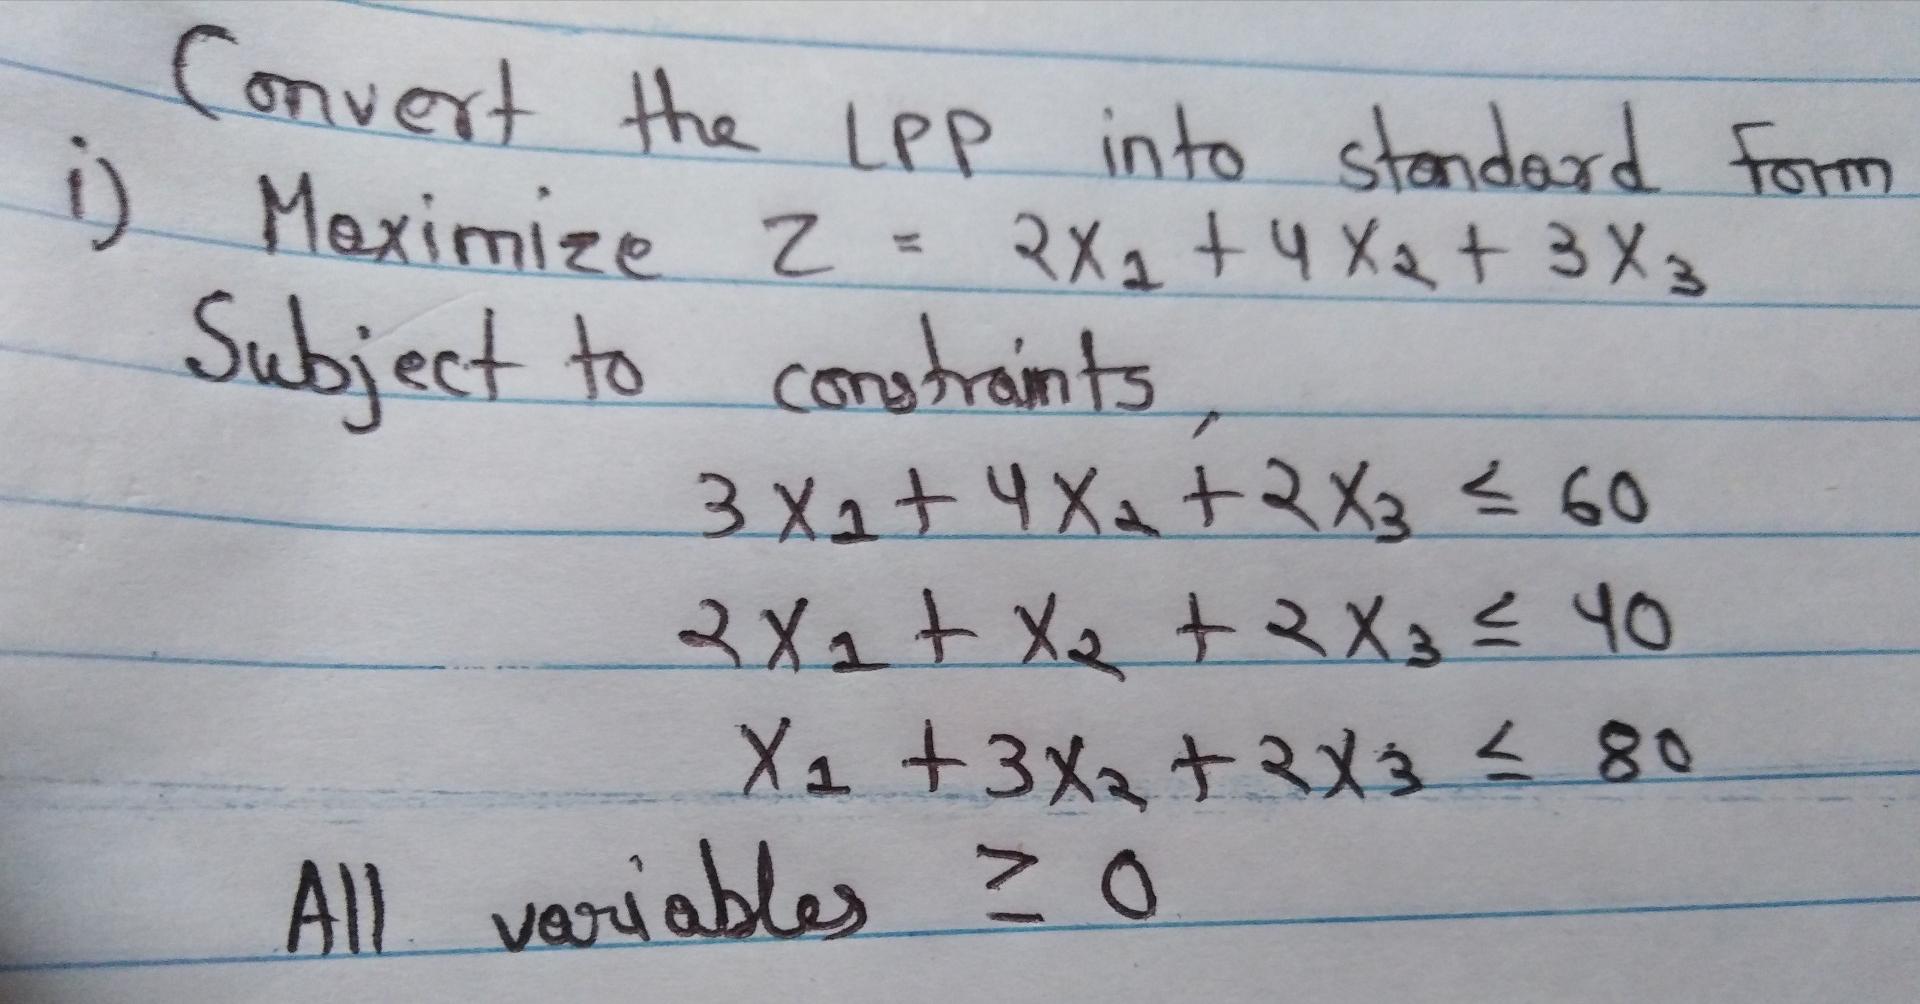 Convert the LPP into standard form
i) Maximize Z = 2X1 + 4X2 + 3X3
Subject to constraints,
3X1 + 4X2 + 2X3 ≤ 60
2X1 + X2 + 2X3 ≤ 40
X1 + 3X2 + 2X3 ≤ 80
All variables ≥ 0